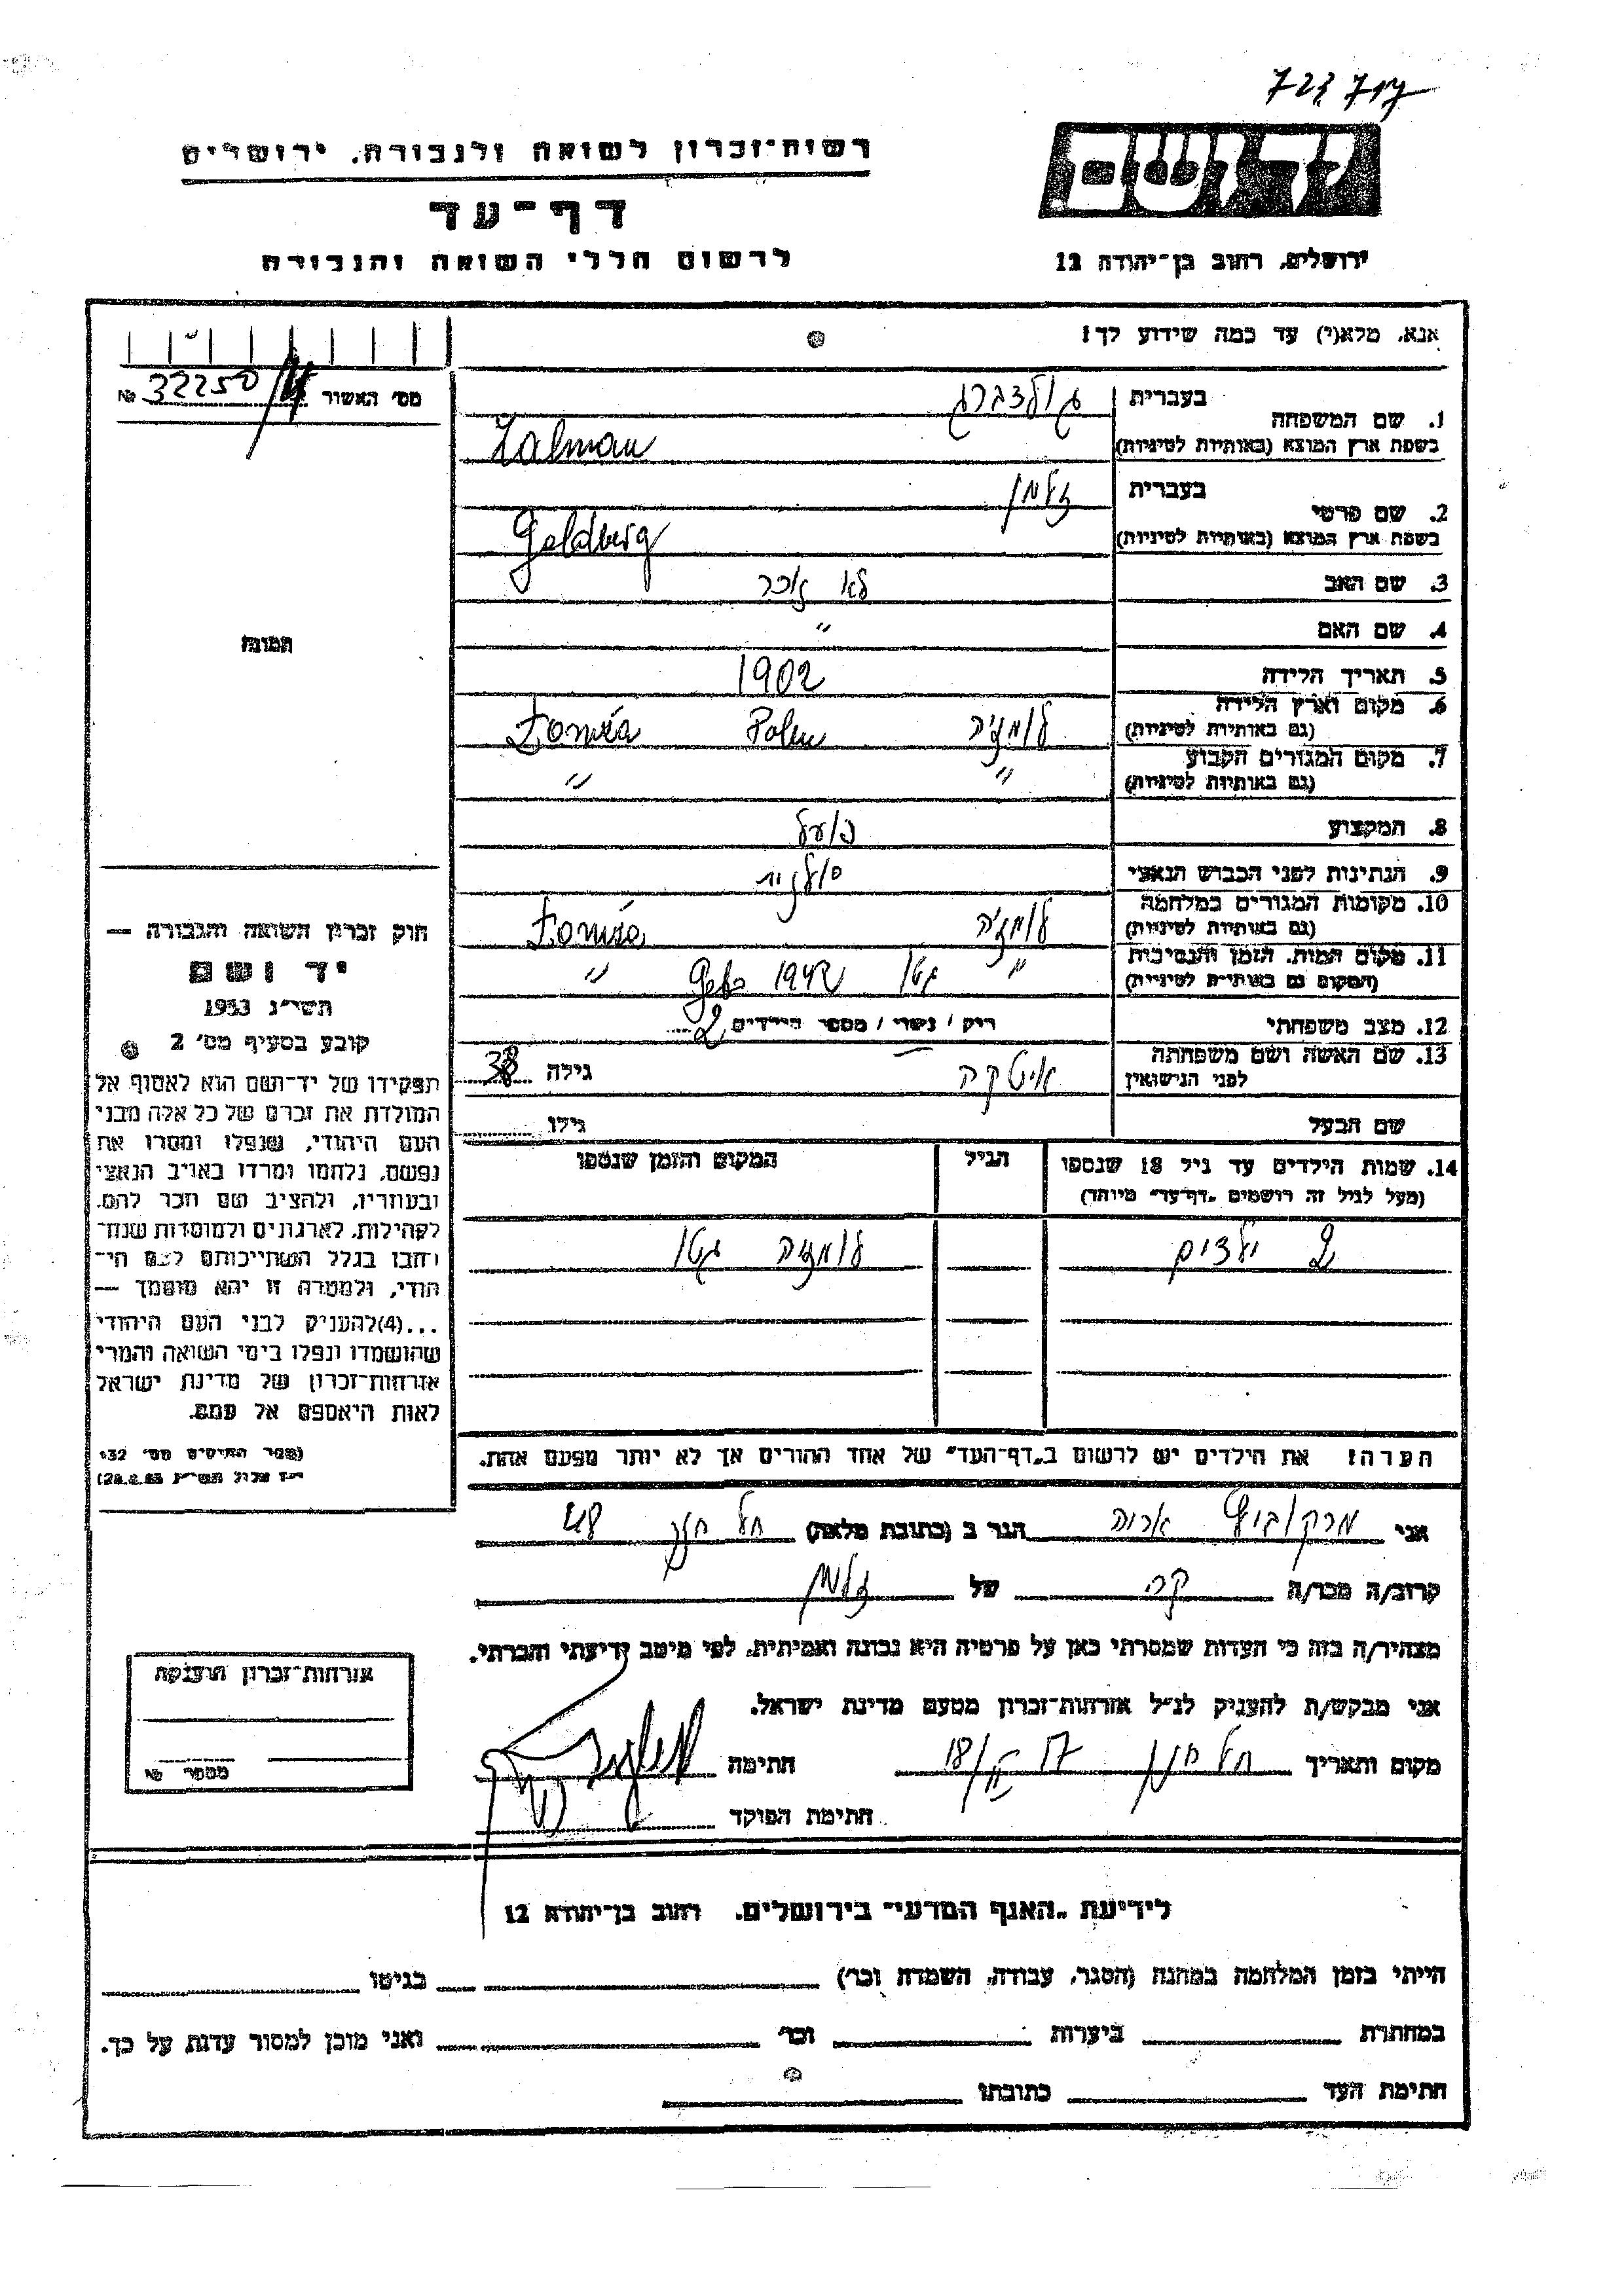 רשות-זכרון לשואה ולגבורה, ירושלים
דף-עד
לרשום חללי השואה והגבורה
יד ושם
ירושלים, רחוב בן-יהודה 12
אנא, מלא(י) עד כמה שידוע לך!
מס' האשור 32250 №
1. שם המשפחה בעברית גולדברג
בשפת ארץ המוצא (באותיות לטיניות) Zalman
2. שם פרטי בעברית זלמן
בשפת ארץ המוצא (באותיות לטיניות) Goldberg
3. שם האב לא זוכר
4. שם האם "
5. תאריך הלידה 1902
6. מקום וארץ הלידה לומזה Polen Łomża
(גם באותיות לטיניות)
7. מקום המגורים הקבוע " "
(גם באותיות לטיניות)
8. המקצוע פועל
9. הנתינות לפני הכבוש הנאצי פולנית
10. מקומות המגורים במלחמה לומזה Łomża
(גם באותיות לטיניות)
11. מקום המות, הזמן והנסיבות " גטו 1942 Geto "
(המקום גם באותיות לטיניות)
12. מצב משפחתי ריק / נשוי / מספר הילדים 2
13. שם האשה ושם משפחתה איטקה גילה 38
לפני הנישואין
שם הבעל גילו
14. שמות הילדים עד גיל 18 שנספו הגיל המקום והזמן שנספו
(מעל לגיל זה רושמים „דף-עד" מיוחד)
2 ילדים לומזה גטו
הערה! את הילדים יש לרשום ב„דף-העד" של אחד ההורים אך לא יותר מפעם אחת.
תמונה
חוק זכרון השואה והגבורה —
יד ושם
תשי"ג 1953
קובע בסעיף מס' 2
תפקידו של יד-ושם הוא לאסוף אל
המולדת את זכרם של כל אלה מבני
העם היהודי, שנפלו ומסרו את
נפשם, נלחמו ומרדו באויב הנאצי
ובעוזריו, ולהציב שם וזכר להם,
לקהילות, לארגונים ולמוסדות שנח-
רבו בגלל השתייכותם לעם הי-
הודי, ולמטרה זו יהא מוסמך —
...(4)להעניק לבני העם היהודי
שהושמדו ונפלו בימי השואה והמרי
אזרחות-זכרון של מדינת ישראל
לאות היאספם אל עמם.
(ספר החוקים מס' 132
אני מרקוביץ אריה הגר ב (כתובת מלאה)
קרוב/ה מכר/ה של זלמן
מצהיר/ה בזה כי העדות שמסרתי כאן על פרטיה היא נכונה ואמיתית, לפי מיטב ידיעתי והכרתי.
אני מבקש/ת להעניק לנ"ל אזרחות-זכרון מטעם מדינת ישראל.
מקום ותאריך חתימה
חתימת הפוקד
אזרחות-זכרון הוענקה
מספר №
לידיעת „האגף המדעי" בירושלים, רחוב בן-יהודה 12
הייתי בזמן המלחמה במחנה (הסגר, עבודה, השמדה וכו') בגיטו
במחתרת ביערות וכו' ואני מוכן למסור עדות על כך.
חתימת העד כתובתו